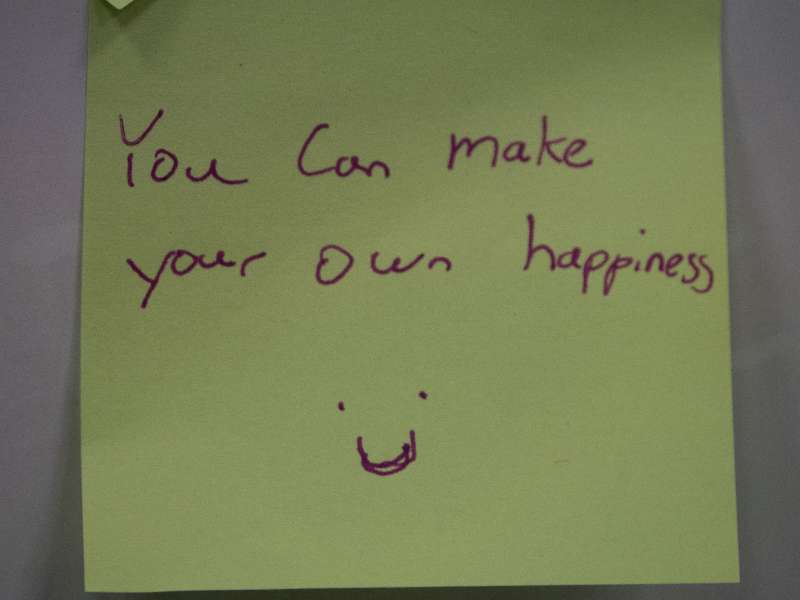 You can make
your own happiness